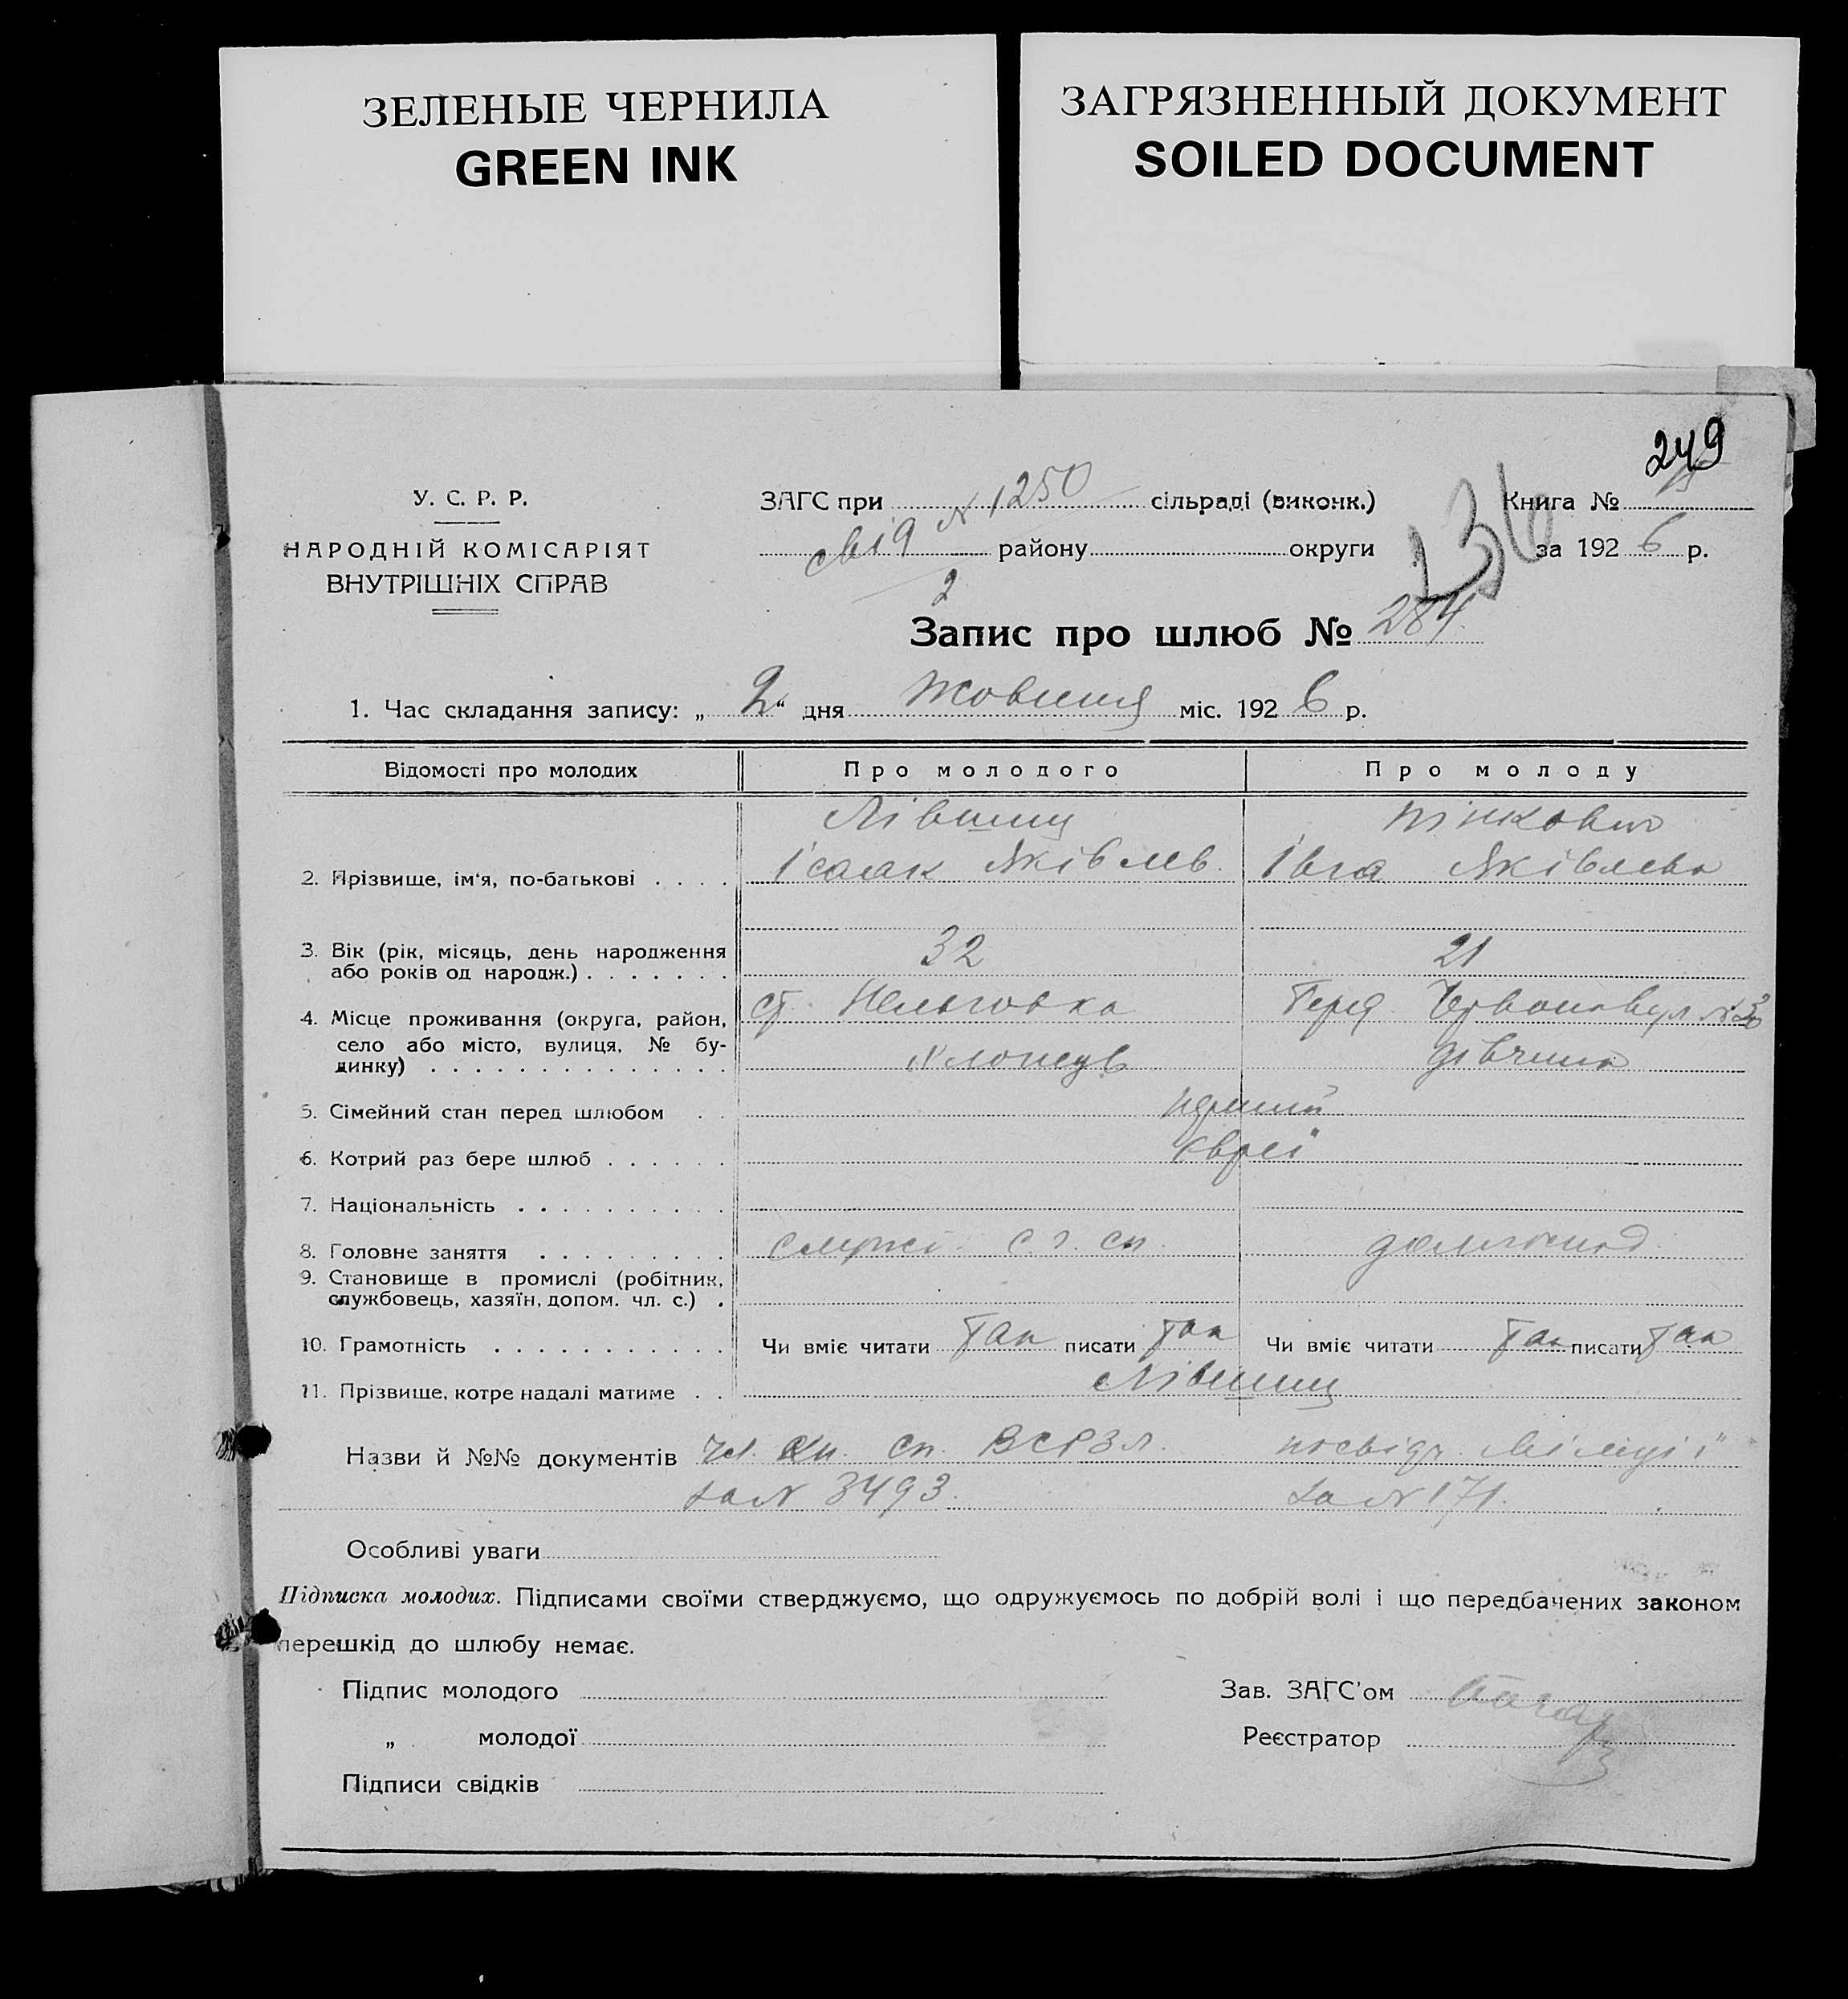 ЗЕЛЕНЫЕ ЧЕРНИЛА
GREEN INK
ЗАГРЯЗНЕННЫЙ ДОКУМЕНТ
SOILED DOCUMENT
249
У. С. Р. Р.
НАРОДНІЙ КОМІСАРІЯТ
ВНУТРІШНІХ СПРАВ
ЗАГС при N 1250 сільраді (виконк.)
свід району округи
2
Книга №
136
за 1926 р.
Запис про шлюб № 284
1. Час складання запису: „2" дня Жовтня міс. 1926 р.
Відомості про молодих Про молодого Про молоду
Лівшиц
Ісаак Яківлев.
Івга Яківлева
2. Прізвище, ім'я, по-батькові
3. Вік (рік, місяць, день народження
або років од народж.) 32 21
4. Місце проживання (округа, район, ст.
село або місто, вулиця, № бу-
динку) хлопець дівчина
5. Сімейний стан перед шлюбом
6. Котрий раз бере шлюб євреї
7. Національність
8. Головне заняття с. г. сп. домгоспод
9. Становище в промислі (робітник,
службовець, хазяїн, допом. чл. с.)
10. Грамотність Чи вміє читати так писати так Чи вміє читати так писати так
11. Прізвище, котре надалі матиме Лівшиц
Назви й №№ документів Чл. кн. сп. посвідч. Міліції
за N 3493. за N 171.
Особливі уваги
Підписка молодих. Підписами своїми стверджуємо, що одружуємось по добрій волі і що передбачених законом
перешкід до шлюбу немає.
Підпис молодого
„ молодої
Підписи свідків
Зав. ЗАГС'ом
Реєстратор